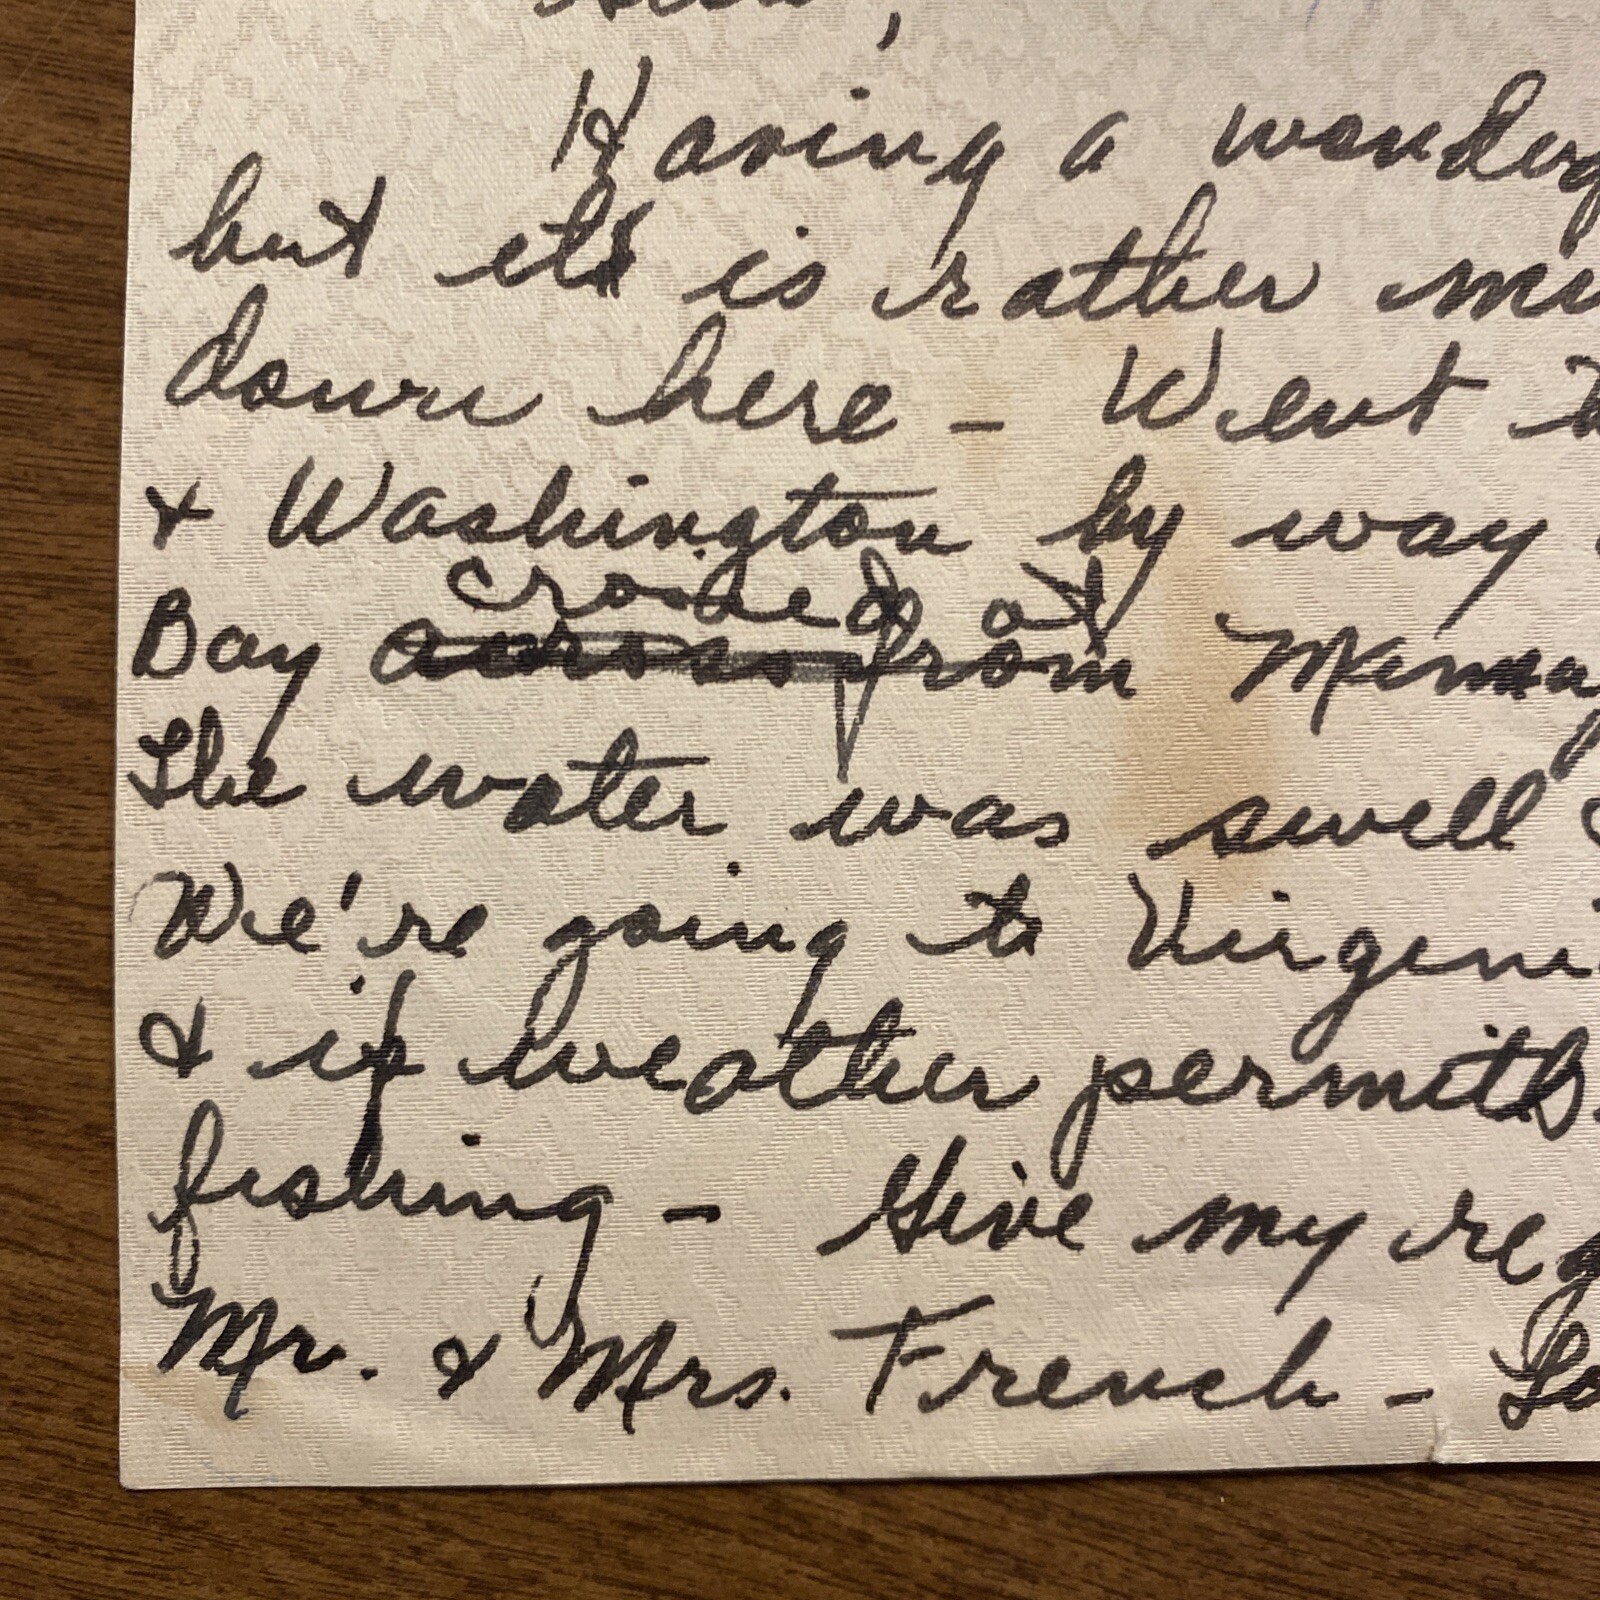 Having a wonderf
but it is rather mu
down here - Went t
& Washington by way
crossed at
Bay across from
The water was swell &
We're going to Virgini
& if weather permits
fishing - Give my reg
Mr. & Mrs. French - Lo